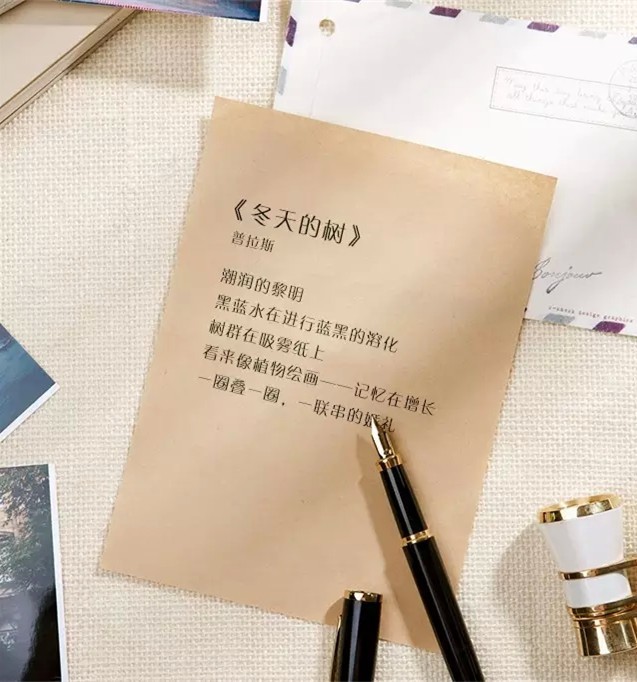 《冬天的树》
普拉斯
潮润的黎明
黑蓝水在进行蓝黑的溶化
树群在吸雾纸上
看来像植物绘画——记忆在增长
一圈叠一圈，一联串的婚礼
Bonjour